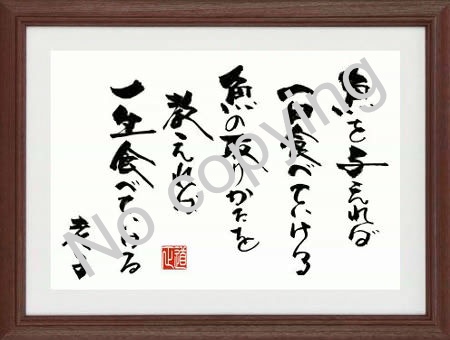 魚を与えれば
一日食べていける
魚の取りかたを
教えれば
一生食べていける
老子
No copying